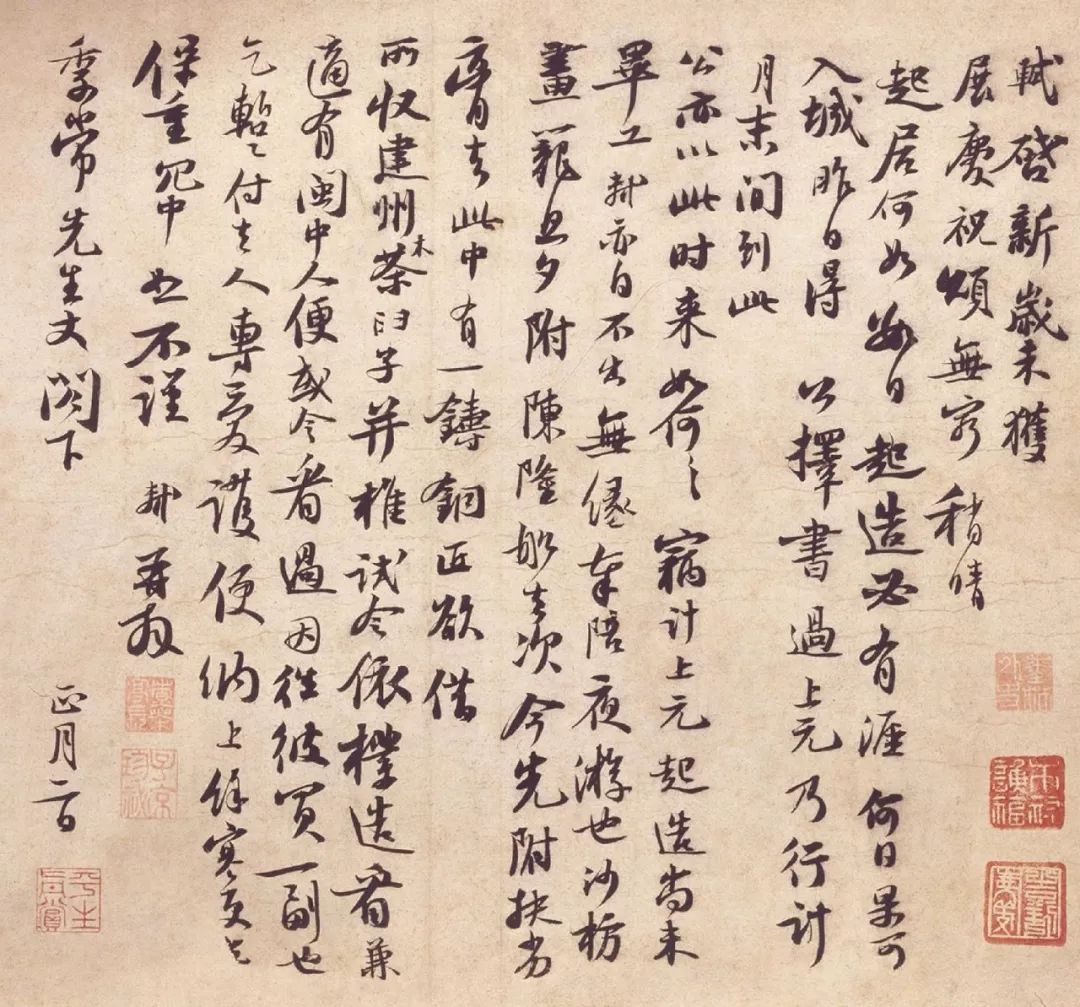 軾啓新歲未獲
展慶祝頌無窮稍晴
起居何如數日起造必有涯何日果可
入城昨日得公擇書過上元乃行計
月末間到此
公亦以此時来如何々竊計上元起造尚未
畢工軾亦自不出無緣奉陪夜遊也沙枋
畫籠旦夕附陳隆船去次今先附扶劣
膏去此中有一鑄銅匠欲借
所收建州木茶臼子并椎試令依樣造看兼
適有閩中人便或令看過因往彼買一副也
乞暫付去人專愛護便納上餘寒更乞
保重冗中恕不謹軾再拜
季常先生丈閣下
正月二日